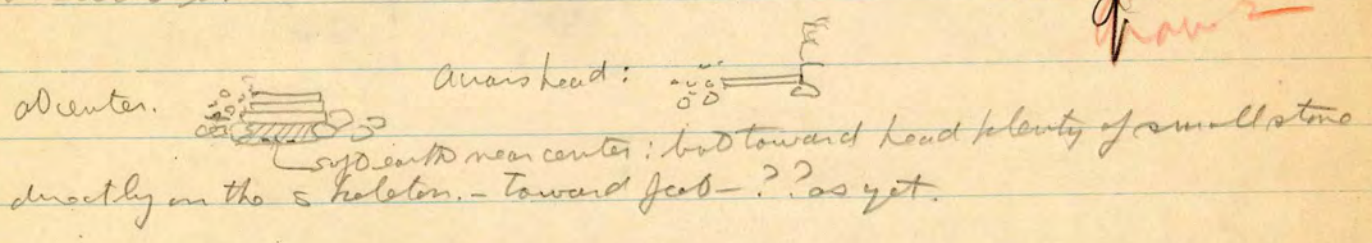 at center. across head:
soft earth near center: but toward head plenty of small stone
directly on the skeleton. - Toward feet - ?? as yet.